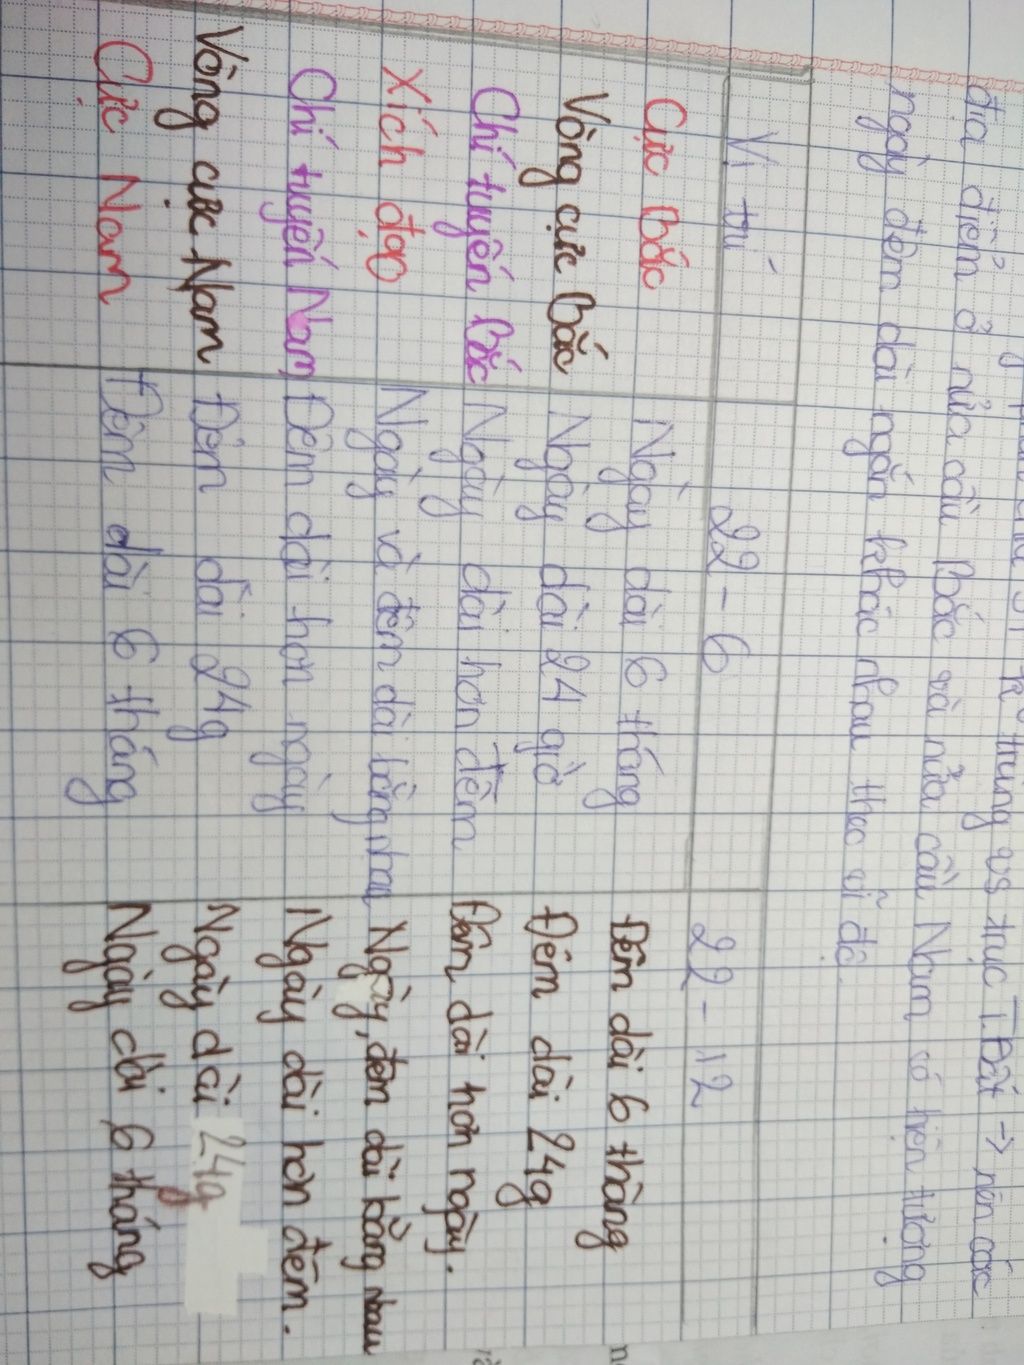 trung vs trục T.Đất → nên các
địa điểm ở nửa cầu Bắc và nửa cầu Nam có hiện tượng
ngày đêm dài ngắn khác nhau theo vĩ độ.
Vị trí 22-6 22-12
Cực Bắc Ngày dài 6 tháng Đêm dài 6 tháng
Vòng cực Bắc Ngày dài 24 giờ Đêm dài 24g
Chí tuyến Bắc Ngày dài hơn đêm Đêm dài hơn ngày.
Xích đạo Ngày và đêm dài bằng nhau Ngày, đêm dài bằng nhau
Chí tuyến Nam Đêm dài hơn ngày Ngày dài hơn đêm.
Vòng cực Nam Đêm dài 24g Ngày dài 24g
Cực Nam Đêm dài 6 tháng Ngày dài 6 tháng